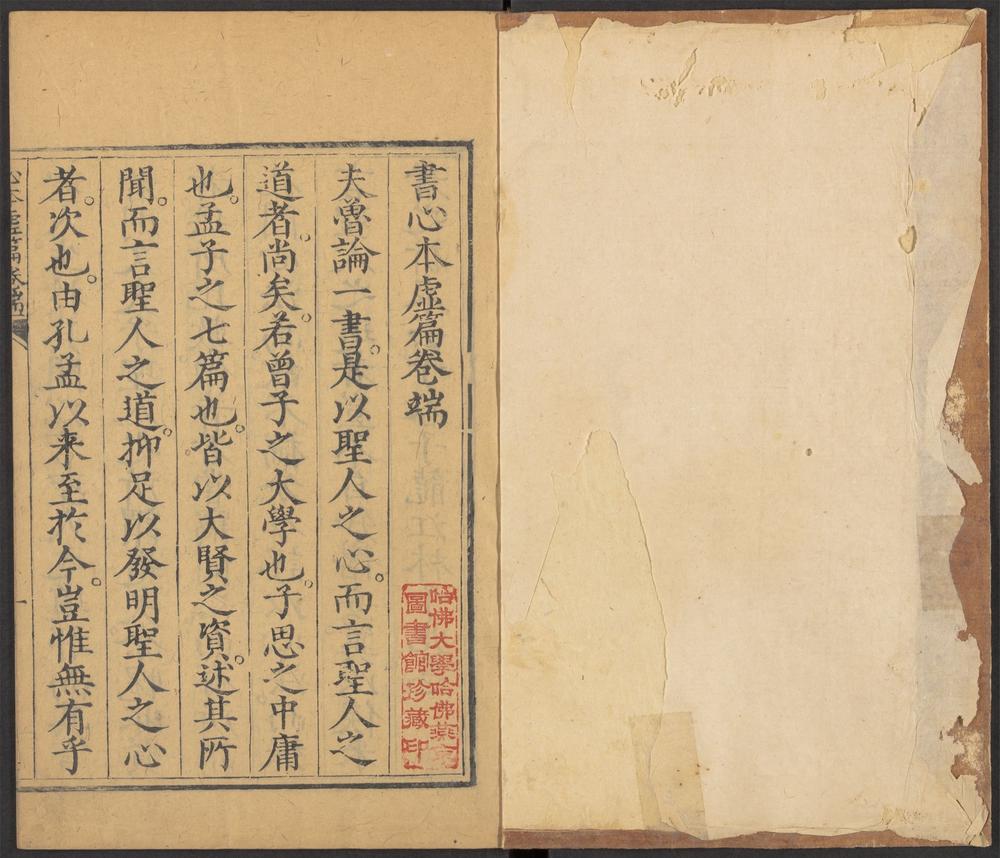 書心本虛篇卷端
夫魯論一書。是以聖人之心。而言聖人之
道者。尚矣。若曾子之大學也。子思之中庸
也。孟子之七篇也。皆以大賢之資。述其所
聞。而言聖人之道。抑足以發明聖人之心
者。次也。由孔孟以来至於今。豈惟無有乎
心本虛篇卷端
哈佛大學哈佛燕京
圖書館珍藏印